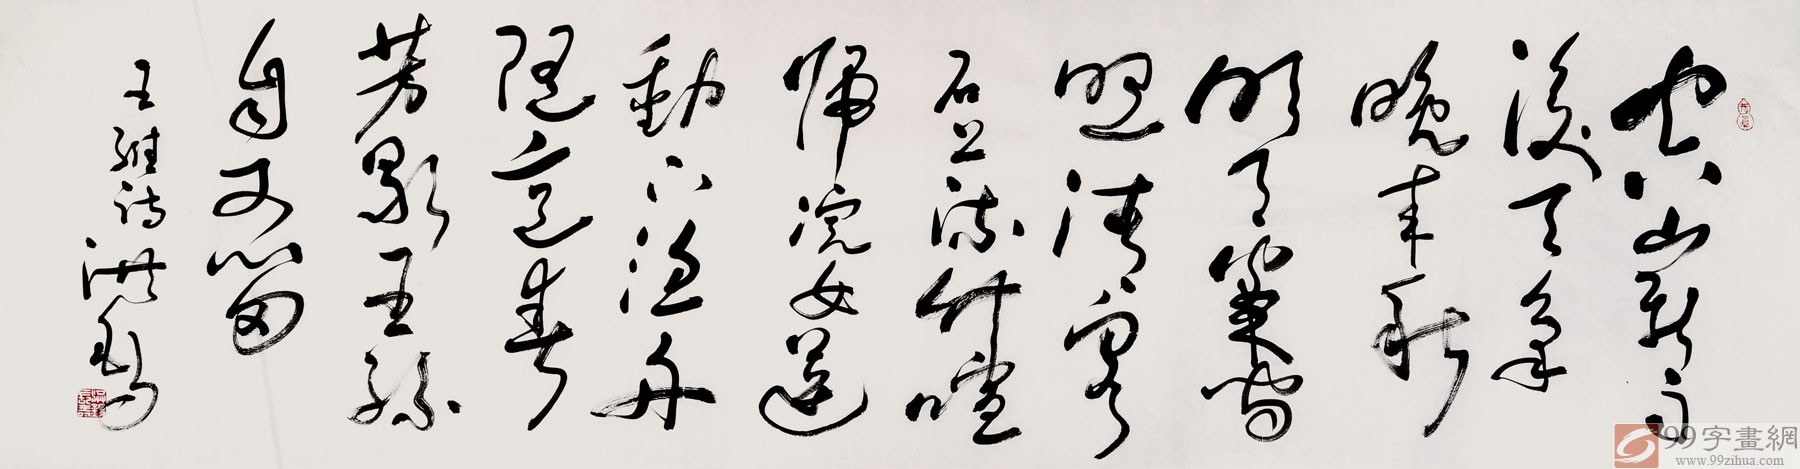 空山新雨
後天氣
晚来秋
明月松間
照清泉
石上流竹喧
歸浣女蓮
動下漁舟
随意春
芳歇王孫
自可留
王維詩洪
99字畫網
www.99zihua.com